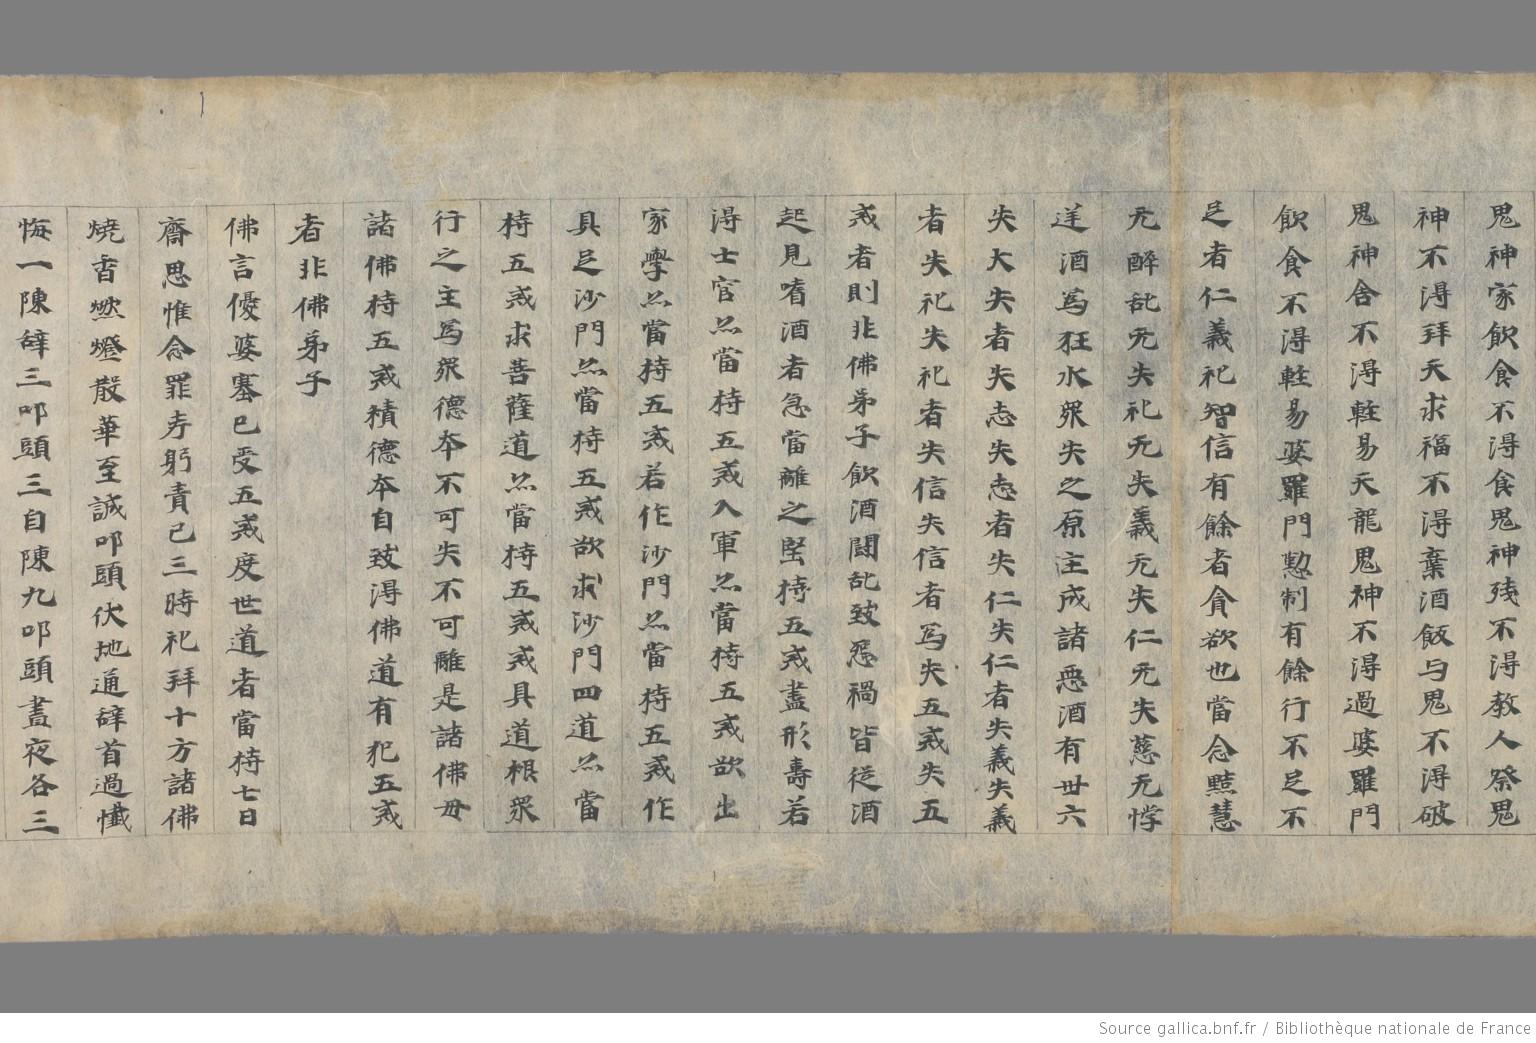 鬼神家飲食不得食鬼神殘不得教人祭鬼
神不得拜天求福不得棄酒飯与鬼不得破
鬼神舍不得輊易天龍鬼神不得過婆羅門
飲食不得輊易婆羅門懃制有餘行不足不
足者仁義祀智信有餘者貪欲也當念黠慧
无醉乱无失祀无失義无失仁无失慈无悖
逆酒為狂水衆失之原主成諸惡酒有卅六
失大失者失志失志者失仁失仁者失義失義
者失祀失祀者失信失信者為失五戒失五
戒者則非佛弟子飲酒鬪乱致怨禍皆從酒
起見嗜酒者急當離之堅持五戒盡形壽若
得士官亦當持五戒入軍亦當持五戒欲出
家學亦當持五戒若作沙門亦當持五戒作
具足沙門亦當持五戒欲求沙門四道亦當
持五戒求菩薩道亦當持五戒戒具道根衆
行之主為衆德夲不可失不可離是諸佛毋
諸佛持五戒積德夲自致得佛道有犯五戒
者非佛弟子
佛言優婆塞已受五戒度世道者當持七日
齋思惟念罪考躬責己三時祀拜十方諸佛
燒香燃燈散華至誠叩頭伏地通辞首過懺
悔一陳辞三叩頭三自陳九叩頭晝夜各三
Source gallica.bnf.fr / Bibliothèque nationale de France